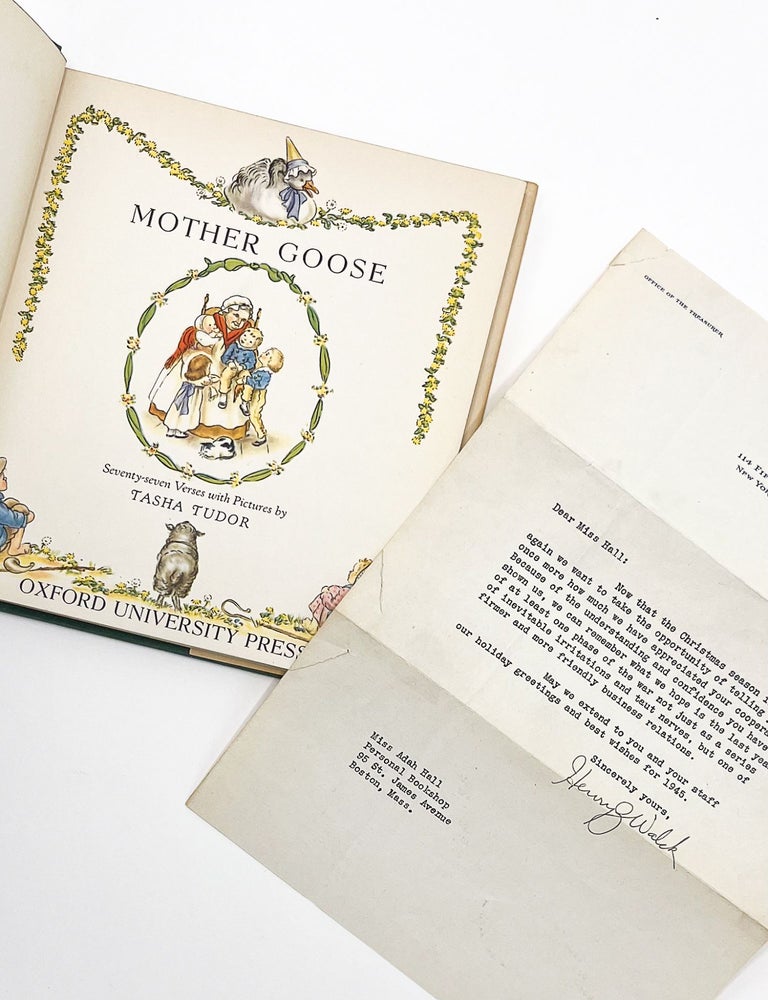 MOTHER GOOSE
Seventy-seven Verses with Pictures by
TASHA TUDOR
OXFORD UNIVERSITY PRESS
OFFICE OF THE TREASURER
114
New
Dear Miss Hall:
Now that the Christmas season
again we want to take the opportunity of telling
once more how much we have appreciated your
Because of the understanding and confidence you have
shown us, we can remember what we hope is the last
of at least one phase of the war not just as a series
of inevitable irritations and taut nerves, but one of
firmer and more friendly business relations.
May we extend to you and your staff
our holiday greetings and best wishes for 1945.
Sincerely yours,
Henry Z Walck
Miss Adah Hall
Personal Bookshop
95 St. James Avenue
Boston, Mass.